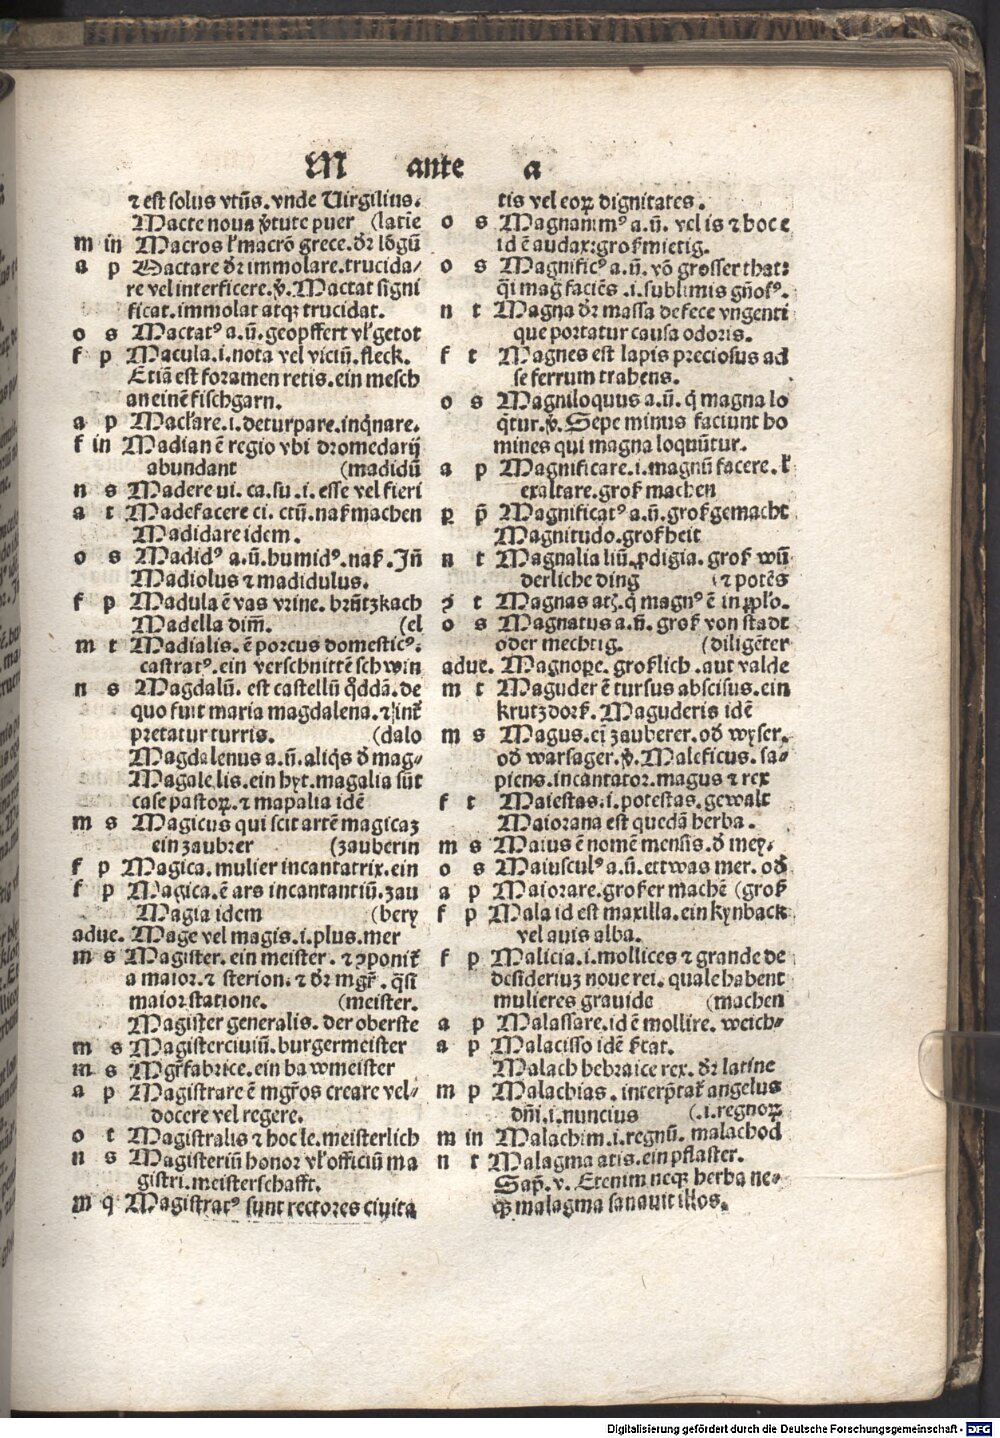 M ante a
⁊ est solus vtũs. vnde Virgilius.
Macte noua v̾tute puer (latĩe
m in Macros l' macrõ grece. dr̃ lõgũ
a p Mactare dr̃ immolare. trucida/
re vel interficere. v̾. Mactat signi
ficat. immolat atq₃ trucidat.
o s Mactatꝰ a. ũ. geopffert vl' getot
f p Macula. i. nota vel viciũ. fleck.
Etiã est foramen retis. ein mesch
an einẽ fischgarn.
a p Macl'are. i. deturpare. inq̃nare.
f in Madian ẽ regio vbi dromedarij
abundant (madidũ
n s Madere ui. ca. su. i. esse vel fieri
a t Madefacere ci. ctũ. naß machen
Madidare idem.
o s Madidꝰ a. ũ. humidꝰ. naß. Jñ
Madiolus ⁊ madidulus.
f p Madula ẽ vas vrine. brũtzkach
Madella dim̃. (el
m t Madialis. ẽ porcus domesticꝰ.
castratꝰ. ein verschnittẽ schwin
n s Magdalũ. est castellũ q̊ddã. de
quo fuit maria magdalena. ⁊ int̃
pretatur turris. (dalo
Magdalenus a. ũ. aliq̃s d̾ mag/
Magale lis. ein hyt. magalia sũt
case pastoꝝ. ⁊ mapalia idẽ
m s Magicus qui scit artẽ magicaꝫ
ein zaubrer (zauberin
f p Magica. mulier incantatrix. ein
f p Magica. ẽ ars incantantiũ. zau
Magia idem (bery
adue. Mage vel magis. i. plus. mer
m s Magister. ein meister. ⁊ ꝯponit̃
a maior. ⁊ sterion. ⁊ dr̃ mgr̃. q̃si
maior statione. (meister.
Magister generalis. der oberste
m s Magister ciuiũ. burgermeister
m s Mgr̃ fabrice. ein bawmeister
a p Magistrare ẽ mgr̃os creare vel/
docere vel regere.
o t Magistralis ⁊ hoc le. meisterlich
n s Magisteriũ honor vl' officiũ ma
gistri. meisterschafft.
m q Magistratꝰ sunt rectores ciuita
tis vel eoꝝ dignitates.
o s Magnanimꝰ a. ũ. vel is ⁊ hoc e
id ẽ audax: großmietig.
o s Magnificꝰ a. ũ. võ grosser that:
q̃i mag̃ faciẽs. i. sublimis gñosꝰ.
n t Magna dr̃ massa de fece vngenti
que portatur causa odoris.
f t Magnes est lapis preciosus ad
se ferrum trahens.
o s Magniloquus a. ũ. q̃ magna lo
q̃tur. v̾. Sepe minus faciunt ho
mines qui magna loquũtur.
a p Magnificare. i. magnũ facere. l'
exaltare. groß machen
ꝑ p̃ Magnificatꝰ a. ũ. groß gemacht
Magnitudo. großheit
n t Magnalia liũ. ꝓdigia. groß wũ
derliche ding (⁊ potẽs
t Magnas atꝫ. q̃ magnꝰ ẽ in ꝓp̃lo.
o s Magnatus a. ũ. groß von stadt
oder mechtig. (diligẽter
adue. Magnoꝑe. großlich. aut valde
m t Maguder ẽ tursus abscisus. ein
krutzdorß. Maguderis idẽ
m s Magus. eĩ zauberer. od̾ wyser.
od̾ warsager. v̾. Maleficus. sa/
piens. incantator. magus ⁊ rex
f t Maiestas. i. potestas. gewalt
Maiorana est quedã herba.
m s Maius ẽ nomẽ mensis. d̾ mey.
o s Maiusculꝰ a. ũ. ettwas mer. od̾
a p Maiorare. großer machẽ (groß
f p Mala id est maxilla. ein kynback
vel auis alba.
f p Malicia. i. mollices ⁊ grande de
desideriuꝫ noue rei. quale habent
mulieres grauide (machen
a p Malassare. id ẽ mollire. weich/
a p Malacisso idẽ st̃cat.
Malach hebraice rex. dr̃ latine
m p Malachias. interp̃tat̃ angelus
dñi. i. nuncius (.i. regnoꝝ
m in Malachim. i. regnũ. malachod
n t Malagma atis. ein pflaster.
Sap̃. v. Etenim neqꝫ herba ne/
qꝫ malagma sanauit illos.
Digitalisierung gefördert durch die Deutsche Forschungsgemeinschaft - DFG